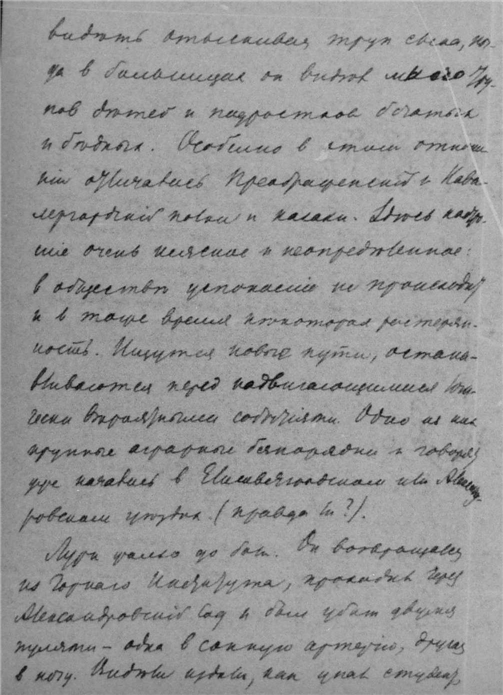 видѣть отыскивая трупъ сына, ко-
гда в больницах он видѣл много тру-
пов дѣтей и подростков богатых
и бѣдных. Особенно в этом отноше-
нiи отличались Преображенскiй и Кава-
лергардскiй полки и казаки. Здѣсь настр
нiе очень неясное и неопредѣленное:
в обществѣ успокоенiе не происходит
и в тоже время нѣкоторая растерян-
ность. Ищутся новые пути, остана-
вливаются перед надвигающимися
вѣроятными событiями. Одно из них
крупные аграрные безпорядки и говорят
уже начались в Елисаветградском или Александ
ровском уѣздѣ. (правда ли?).
Лури жалко до боли. Он возвращался
из Горнаго Института, проходил через
Александровскiй Сад и был убит двумя
пулями – одна в сонную артерiю, другая
в ногу. Видѣли издали, как упал студент,